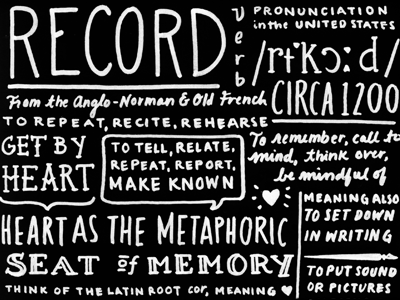 RECORD
verb
PRONUNCIATION
in the UNITED STATES
/rɪˈkɔːd/
From the Anglo-Norman & Old French
CIRCA 1200
TO REPEAT, RECITE, REHEARSE
GET BY
HEART
TO TELL, RELATE,
REPEAT, REPORT,
MAKE KNOWN
To remember, call to
mind, think over,
be mindful of
HEART AS THE METAPHORIC
SEAT of MEMORY
THINK OF THE LATIN ROOT cor, MEANING ♥
MEANING ALSO
TO SET DOWN
IN WRITING
TO PUT SOUND
OR PICTURES